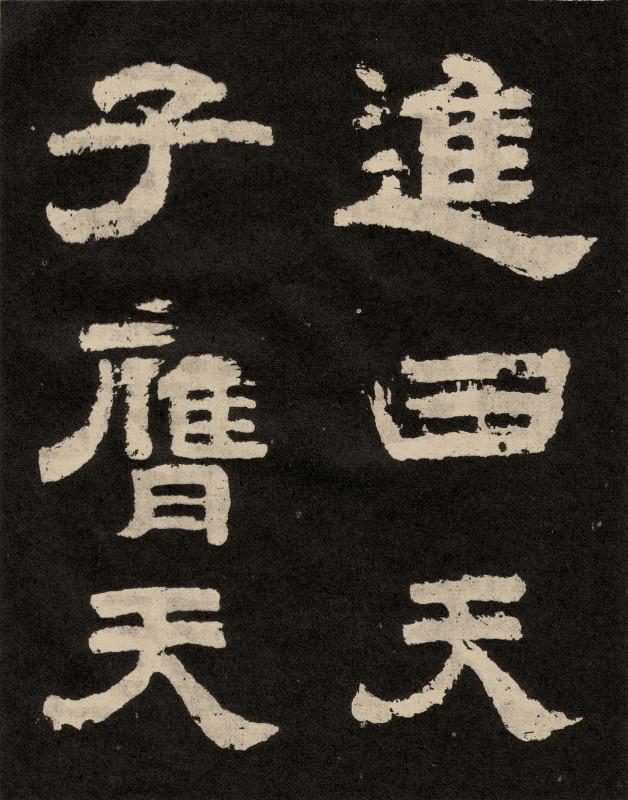 進曰天
子膺天